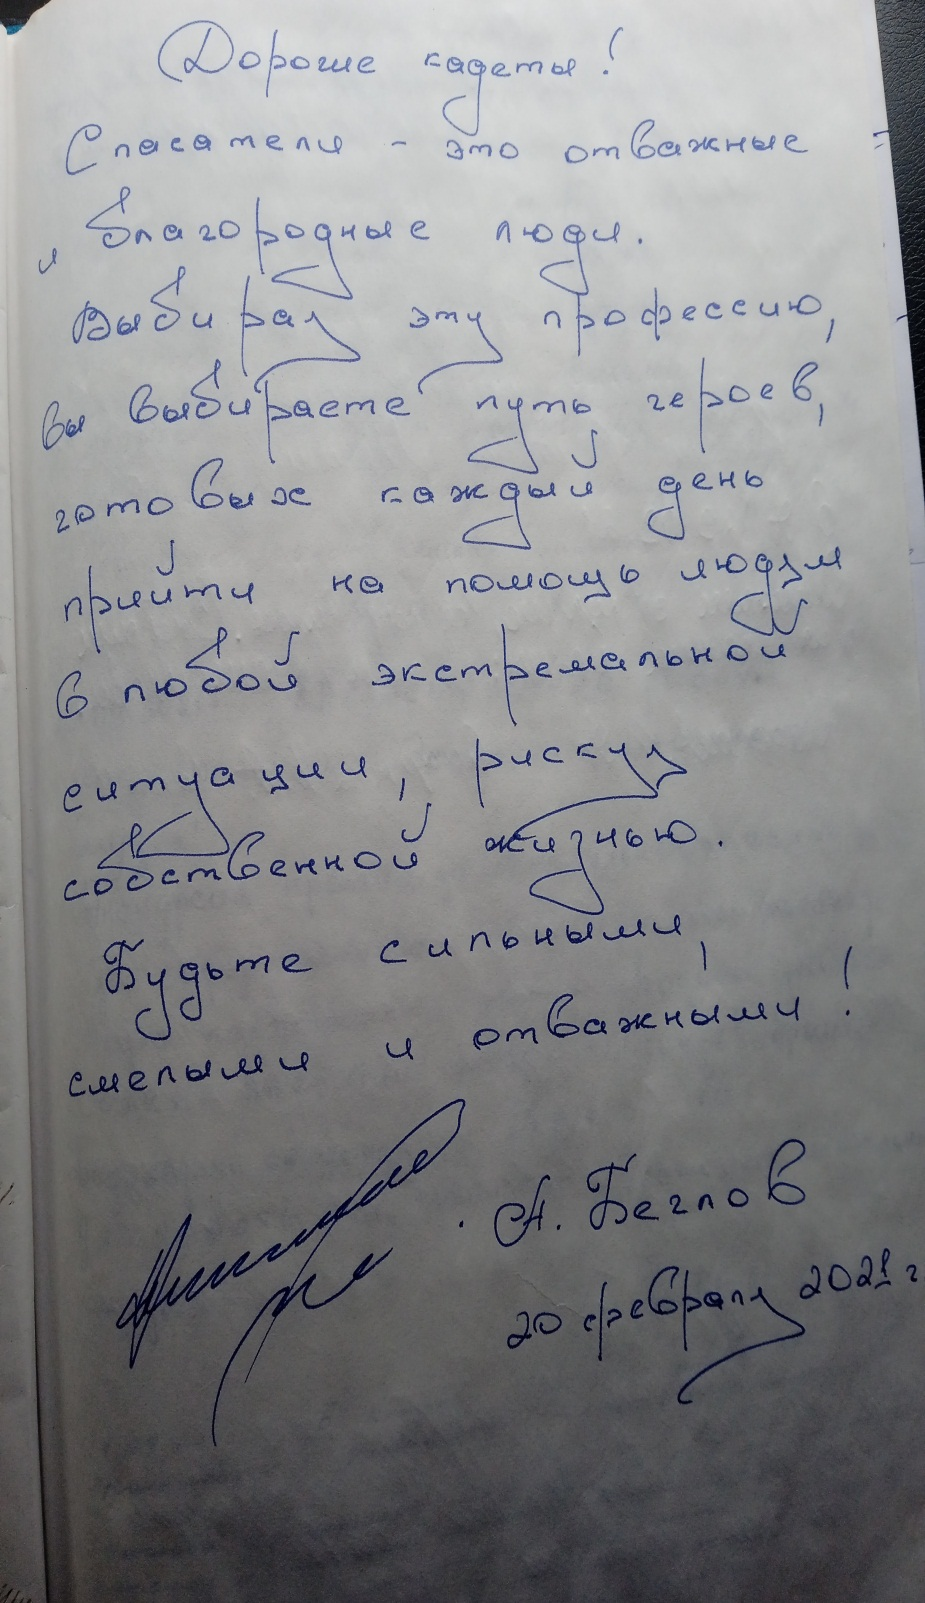 Дорогие кадеты!
Спасатели - это отважные
и благородные люди.
Выбирая эту профессию,
вы выбираете путь героев,
готовых каждый день
прийти на помощь людям
в любой экстремальной
ситуации, рискуя
собственной жизнью.
Будьте сильными,
смелыми и отважными!
А. Беглов
20 февраля 2021 г